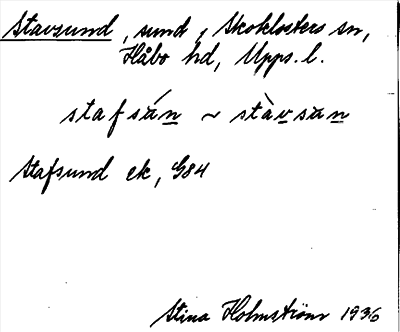 Stavsund, sund, Skoklosters sn,
Håbo hd, Upps. l.
stafsán ~ stàvsàn
Stafsund ek, G84
Stina Holmström 1936